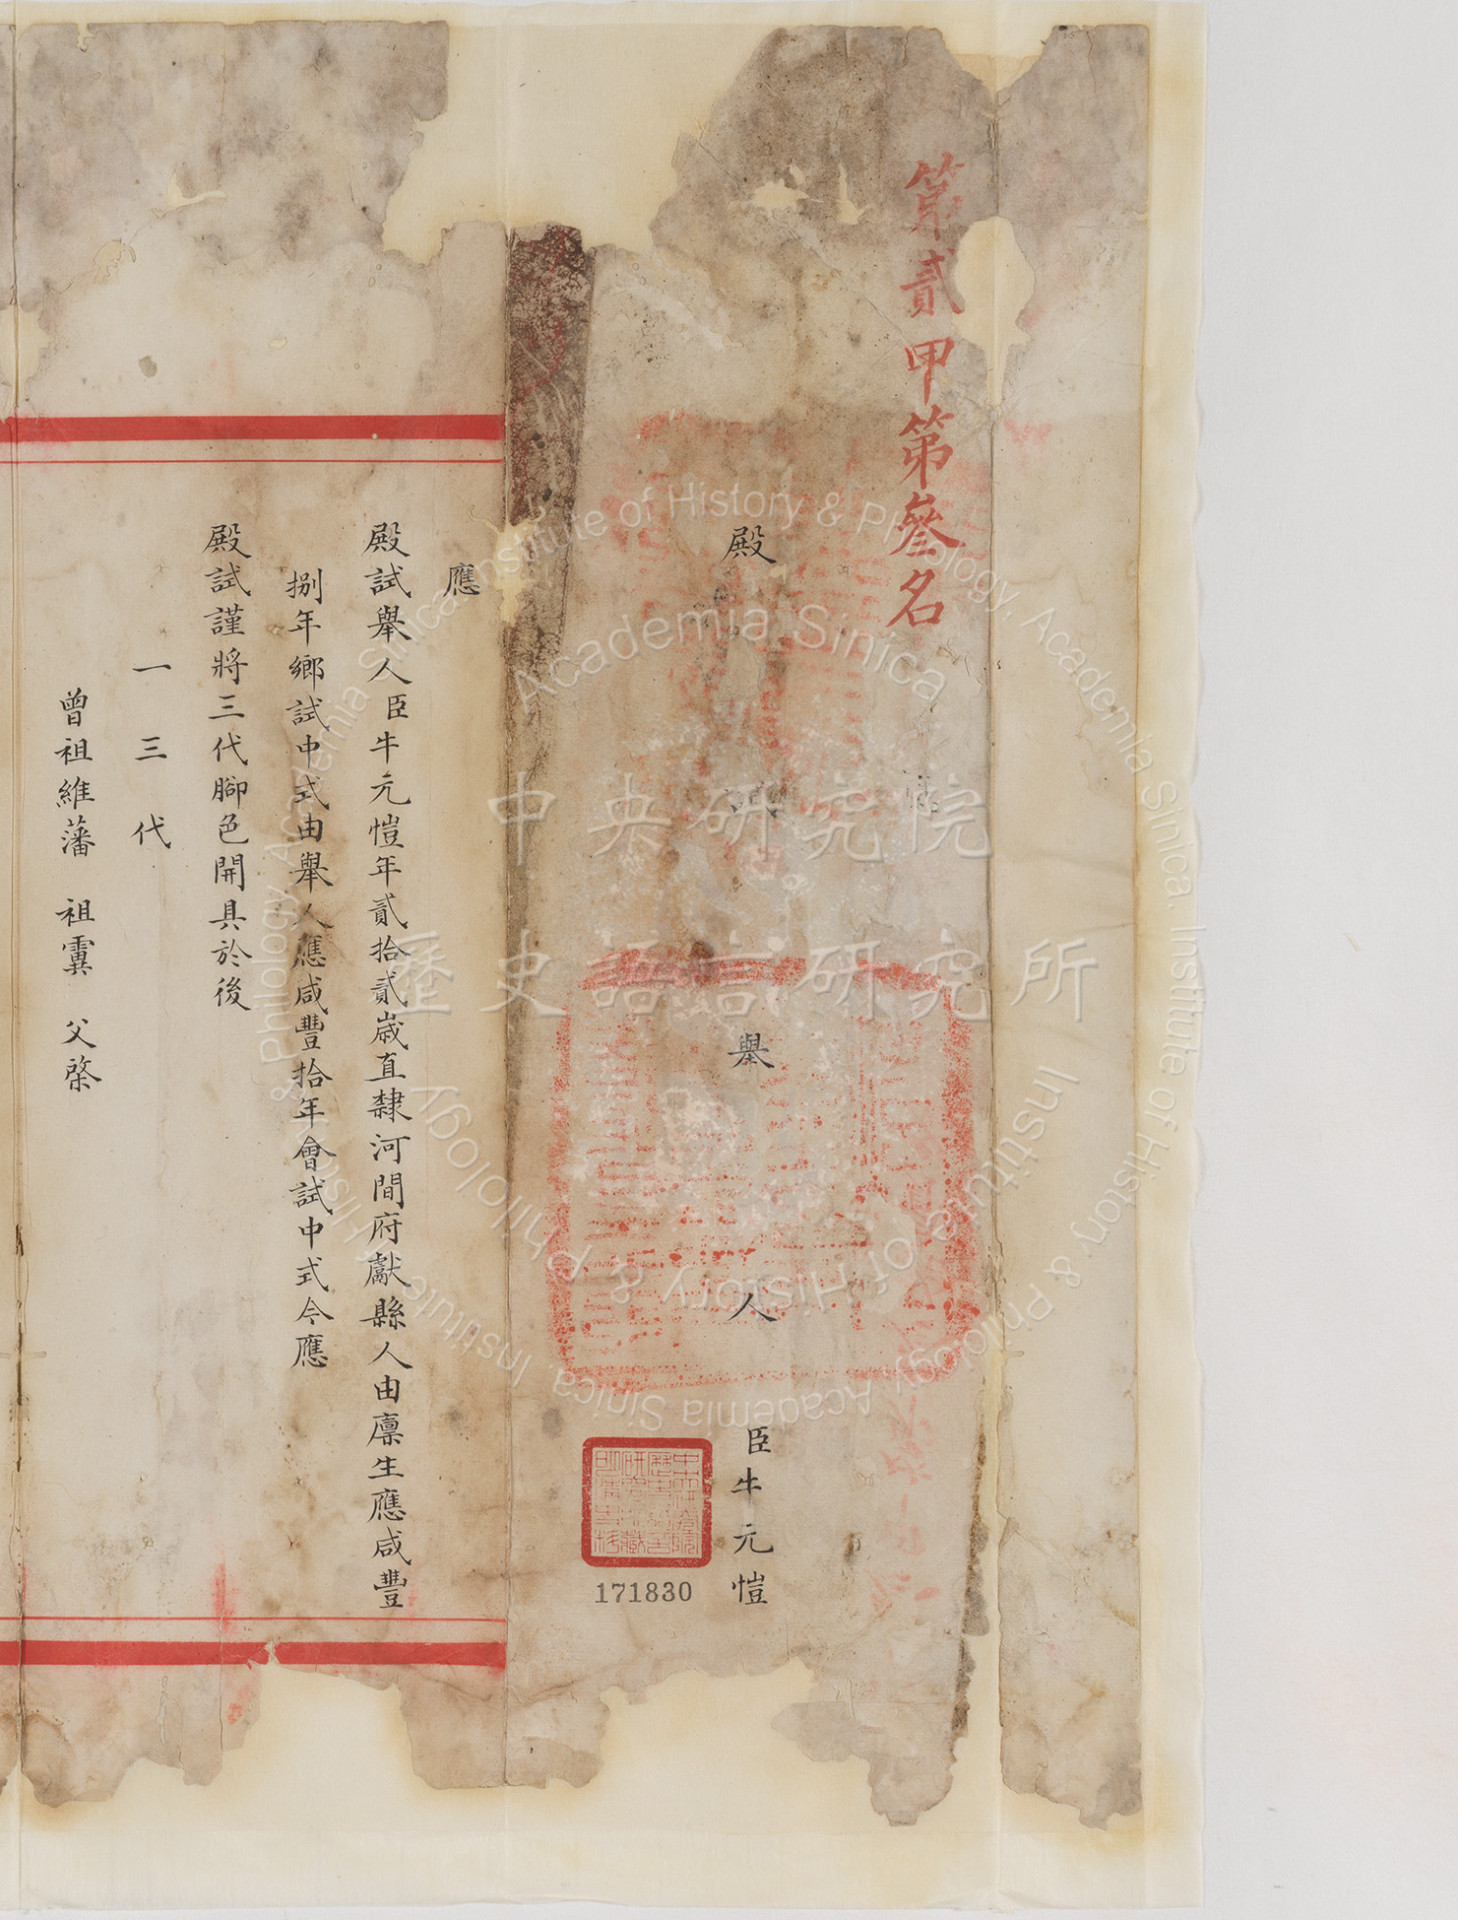 第貳甲第叄名
殿試舉人 臣牛元愷
171830
應
殿試舉人臣牛元愷年貳拾貳歲直隸河間府獻縣人由廩生應咸豐
捌年鄉試中式由舉人應咸豐拾年會試中式今應
殿試謹將三代腳色開具於後
一三代
曾祖維藩 祖霣 父棨
中央研究院
歷史語言研究所
Institute of History & Philology Academia Sinica